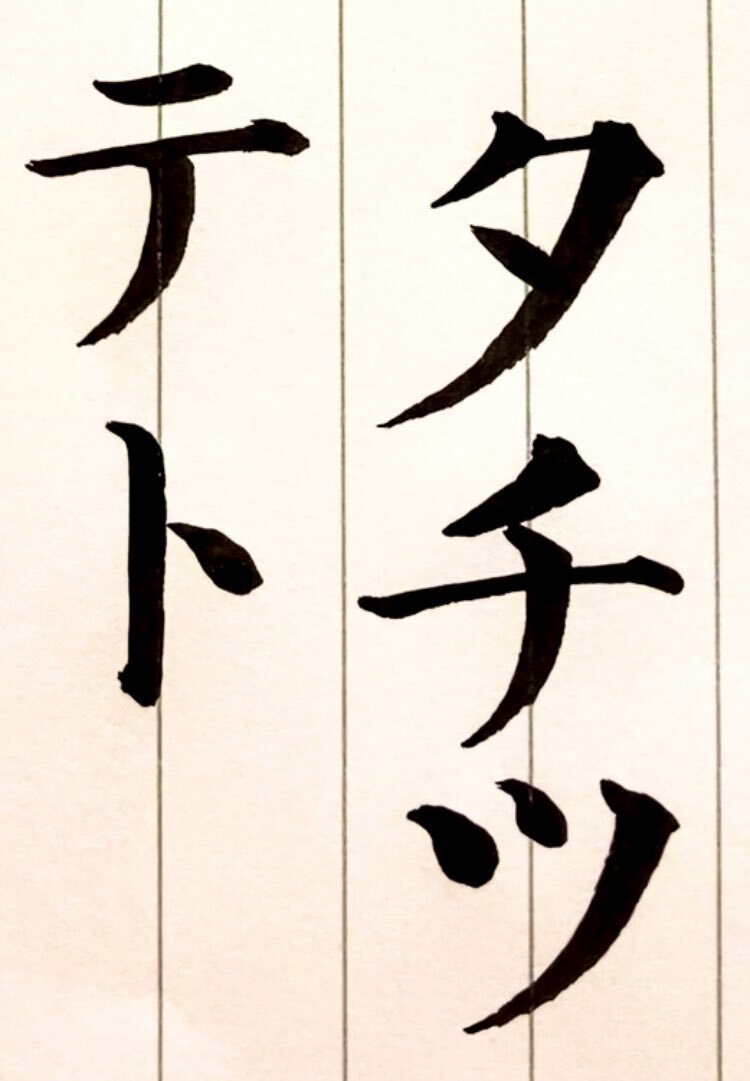 タチツ
テト